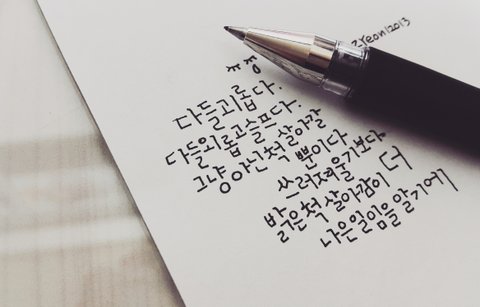 zyeon12013
다들괴롭다.
다들외롭고슬프다.
그냥아닌척 살아갈
뿐이다
쓰러져울기보다
밝은척살아감이 더
나은일임을알기에